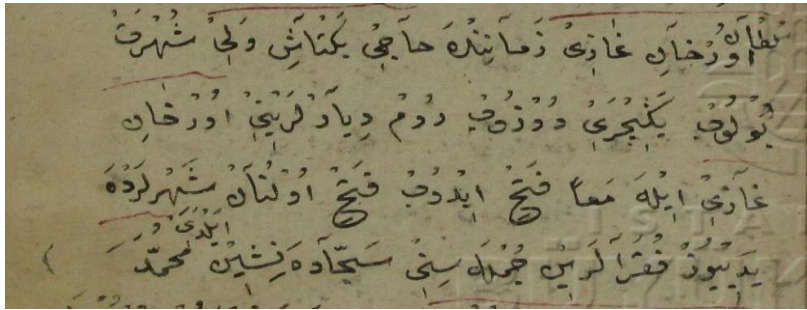 سُلْطَانْ اُورْخَانِ غَازِیْ زَمَانِنْدَه حَاجِیْ بَكْتَاشِ وَلِیْ شُهْرَتْ
بُولُوبْ يَڭِيچَرِیْ دُوزُوبْ رُومْ دِيَارْلَرِينِیْ اُورْخَانِ
غَازِیْ اِيْلَه مَعاً فَتْحْ اِيْدُوبْ فَتْحْ اُولُنَانْ شَهْرلَرْدَه
يَدِيیُوزْ فُقَرَالَرِينْ جُمْلَه سِنِیْ سَجَّادَه نِشِينْ اَيْلَدِیْ مُحَمَّدْ